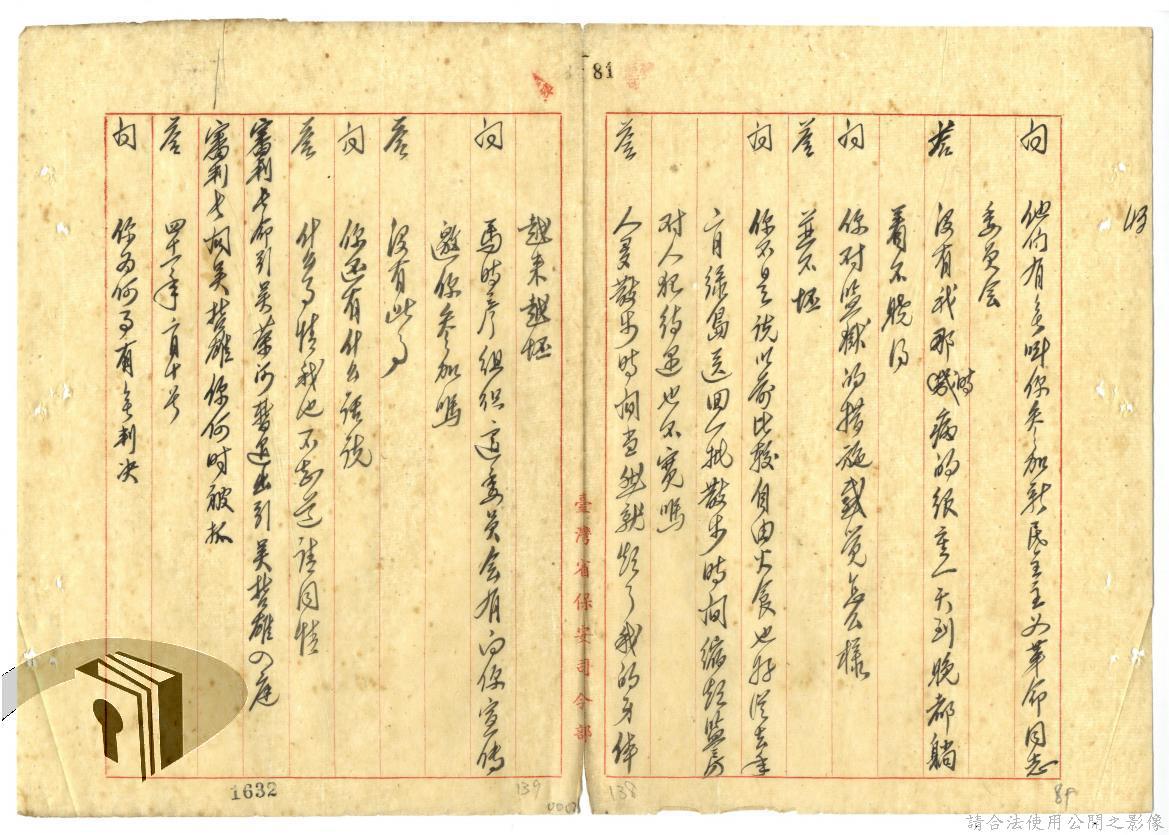 81
问 他们有無叫你参加新民主主义革命同志
委员会
答 没有我那時病的很重一天到晚都躺
着不晓得
问 你对监獄的措施感觉怎么樣
答 並不坯
问 你不是说以前比較自由火食也好從去年
二月绿島送回一批散步時间縮短監房
对人犯待遇也不宽嗎
答 人多散步時间当然就短了我的身体
越来越坯
问 馬時彦组织这委员会有向你宣傳
邀你参加嗎
答 没有此事
问 你还有什么话说
答 什么事情我也不知道请同情
審判长命引吴荣河暫退出引吴哲雄入庭
審判长问吴哲雄你何时被抓
答 四十一年二月十号
问 你为何事有無判决
臺灣省保安司令部
1632
139
138
請合法使用公開之影像